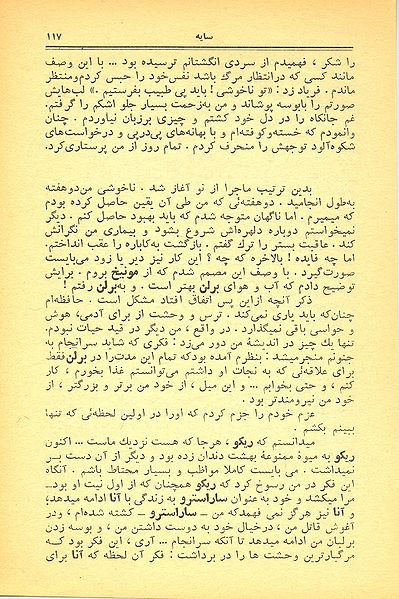 سایه ۱۱۷
را شکر، فهمیدم از سردی انگشتانم ترسیده بود ... با این وصف
مانند کسی که در انتظار مرگ باشد نفس خود را حبس کردم و منتظر
ماندم . فریاد زد : «تو ناخوشی ! باید پی طبیب بفرستیم .» لب‌هایش
صورتم را با بوسه پوشاند و من به‌زحمت بسیار جلو اشکم را گرفتم.
غم جانکاه را در دل خود کشتم و چیزی برزبان نیاوردم . چنان
وانمودم که خسته و کوفته‌ام و با بهانه‌های پی‌درپی و درخواست‌های
شکوه‌آلود توجهش را منحرف کردم . تمام روز از من پرستاری کرد.
بدین ترتیب ماجرا از نو آغاز شد . ناخوشی من دوهفته
به‌طول انجامید . دوهفته‌ئی که من طی آن یقین حاصل کرده بودم
که میمیرم . اما ناگهان متوجه شدم که باید بهبود حاصل کنم . دیگر
نمیخواستم دوباره دلهره‌اش شروع بشود و بیماری من نگرانش
کند . عاقبت بستر را ترك گفتم . بازگشت به‌کاباره را عقب انداختم.
اما چه فایده ! بالاخره که چه ؟ این کار نیز دیر یا زود می‌بایست
صورت گیرد . با وصف این مصمم شدم که از مونیخ بروم . برایش
توضیح دادم که آب و هوای برلن بهتر است . و به‌برلن رفتم !
ذکر آنچه از این پس اتفاق افتاد مشکل است . حافظه‌ام
چنان‌که باید یاری نمی‌کند . ترس و وحشت از برای آدمی، هوش
و حواسی باقی نمیگذارد . در واقع ، من دیگر در قید حیات نبودم.
تنها یك چیز در اندیشهٔ من دور می‌زد : فکری که شاید سرانجام به
جنونم منجر میشد : بنظرم آمده بود که تمام این مدت را در برلن فقط
برای علاقه‌ئی که به نجات او داشتم می‌توانستم غذا بخورم ، کار
کنم ، و حتی بخوابم ... و این میل ، از خود من برتر و بزرگتر ، از
خود من نیرومندتر بود .
عزم خودم را جزم کردم که او را در اولین لحظه‌ئی که تنها
ببینم بکشم .
میدانستم که ریکو ، هرجا که هست نزدیك ماست ... اکنون
ریکو به میوهٔ ممنوعهٔ بهشت دندان زده بود و دیگر از آن دست بر
نمیداشت . می بایست کاملا مواظب و بسیار محتاط باشم . آنگاه
این فکر در من رسوخ کرد که ریکو همچنان که از اول نیت او بود..
مرا میکشد و خود به عنوان ساراسترو به زندگی با آنا ادامه میدهد؛
و آنا نیز هرگز نمی فهمد که من – ساراسترو – کشته شده‌ام ، ودر
آغوش قاتل من ، درخیال خود به دوست داشتن من ، و بوسه زدن
برلبان من ادامه میدهد تا آنکه سرانجام ... آری ، این فکر بود که
مرگبارترین وحشت ها را در برداشت : فکر آن لحظه که آنا برای